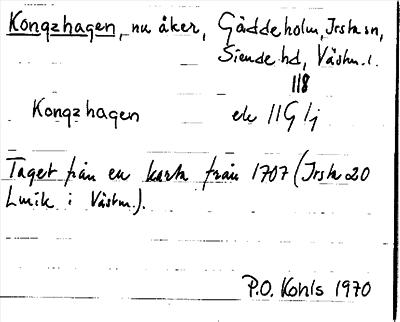 Konqzhagen, nu åker, Gäddeholm, Irsta sn,
Siende hd, Västm. l.
118
Konqzhagen ek 11G 1j
Taget från en karta från 1707 (Irsta 20
Lmk i Västm.).
P.O. Kohls 1970